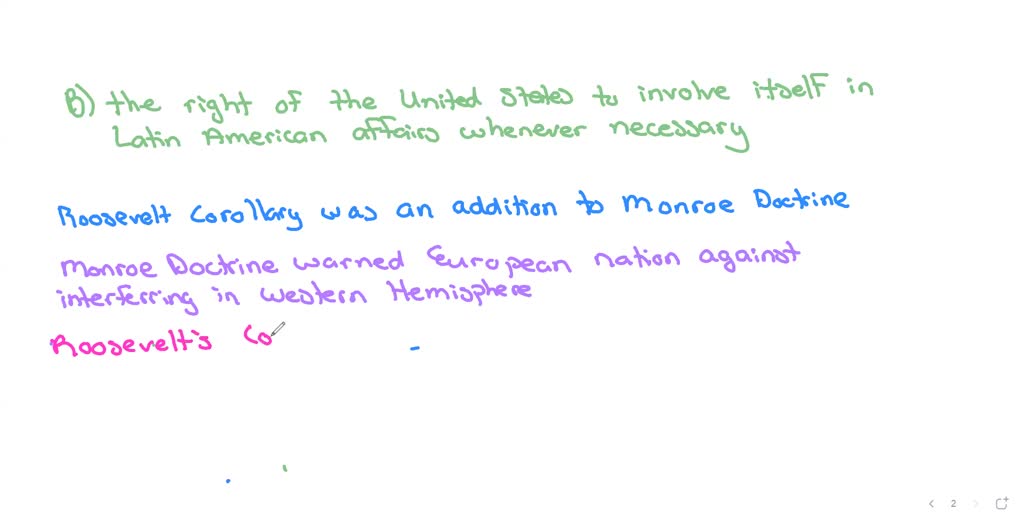 B) the right of the United States to involve itself in
Latin American affairs whenever necessary
Roosevelt Corollary was an addition to Monroe Doctrine
Monroe Doctrine warned European nation against
interferring in Western Hemisphere
Roosevelt's Co
2